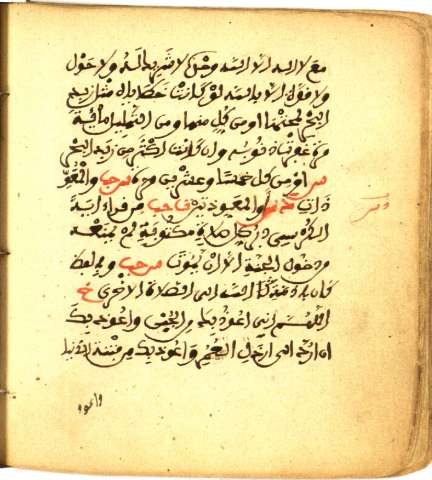 مع لا اله الا الله وحده لا شريك له ولا حول
ولا قوة الا بالله لو كانت خطاياه مثل زبد
البحر لمحتها او من كل منها ومن التهليل مائة
غفرت ذنوبه وان كانت اكثر من زبد البحر
س او من كل خمسا وعشرين مرة س حب والمعو
ذات او المعوذتين حب من قرا اية
الكرسي دبر كل صلاة مكتوبة لم يمنعه
من دخول الجنة الا ان يموت س حب وبلفظ
كان في ذمة الله الى الصلاة الاخرى
اللهم اني اعوذ بك من الجبن واعوذ بك
ان ارد الى ارذل العمر واعوذ بك من فتنة الدنيا
واعوذ